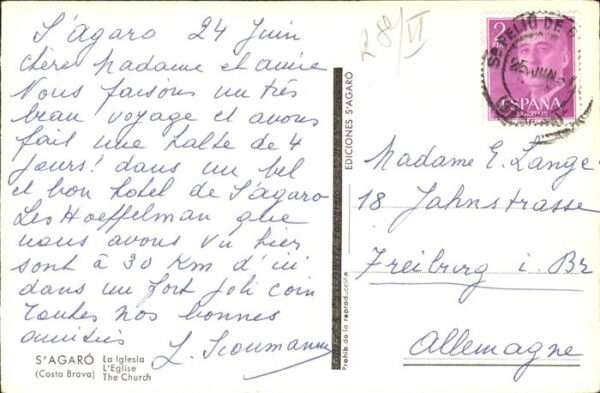 S'agaro 24 Juin
chère Madame et amie
Nous faisons un très
beau voyage et avons
fait une halte de 4
jours! dans un bel
et bon hotel de S'agaro
Les Hoeffelman que
nous avons vu hier
sont à 30 Km d'ici
dans un fort joli coin
Toutes nos bonnes
amitiés
S'AGARÓ
(Costa Brava)
La Iglesia
L'Eglise
The Church
EDICIONES S'AGARÓ
Prohib. de la reproducción
VI
25 JUN.
ESPAÑA
Madame E. Lange
18 Jahnstrasse
Freiburg i. Br
Allemagne